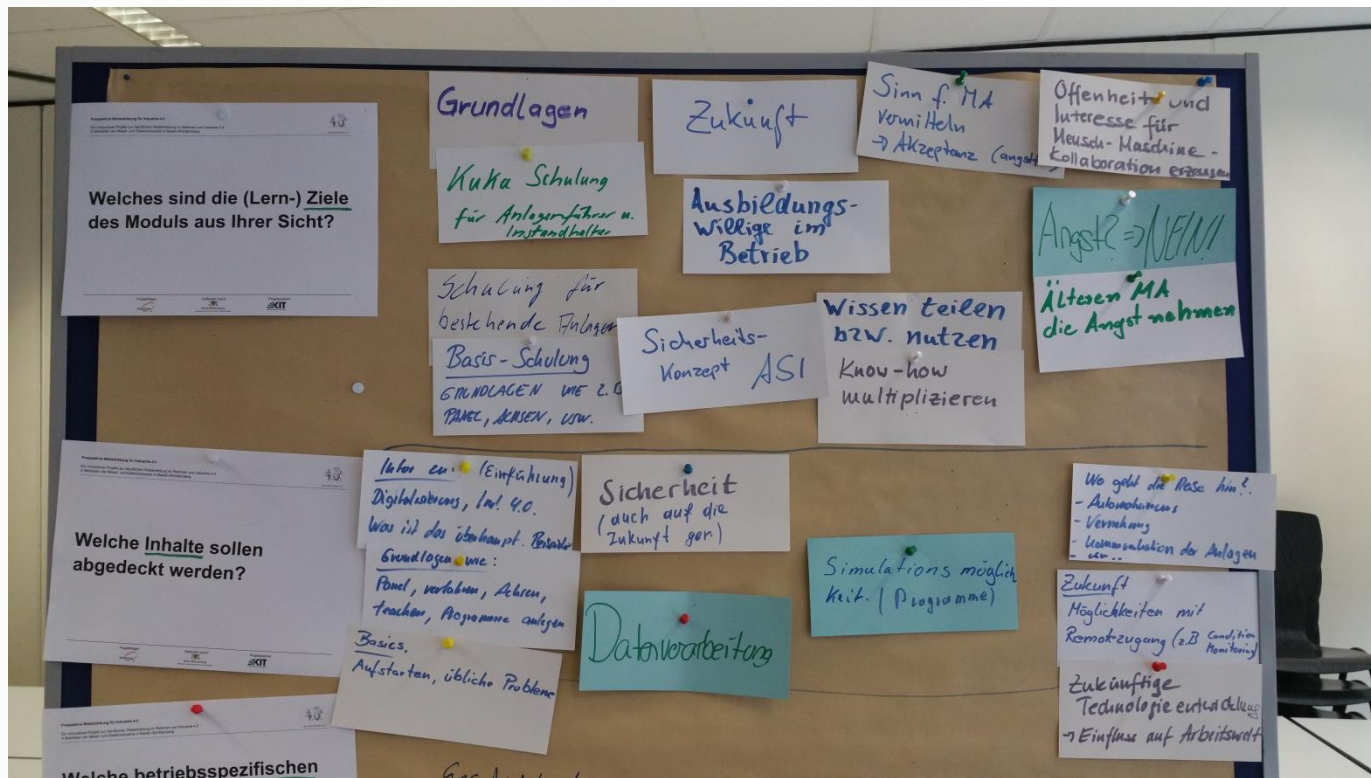 Prospektive Weiterbildung für Industrie 4.0
Welches sind die (Lern-) Ziele
des Moduls aus Ihrer Sicht?
KIT
Grundlagen
Kuka Schulung
für Anlagenführer u.
Instandhalter
Schulung für
bestehende Anlagen
Basis-Schulung
GRUNDLAGEN WIE Z.B
PANEL, ACHSEN, USW.
Zukunft
Ausbildungs-
willige im
Betrieb
Sicherheits-
Konzept ASI
Sinn f. MA
vermitteln
→ Akzeptanz (angst
Wissen teilen
bzw. nutzen
Know-how
multiplizieren
Offenheit und
Interesse für
Mensch-Maschine-
Kollaboration erzeugen
Angst? ⇒ NEIN!
Älteren MA
die Angst nehmen
Prospektive Weiterbildung für Industrie 4.0
Welche Inhalte sollen
abgedeckt werden?
KIT
Infos zu: (Einführung)
Digitalisierung, Ind. 4.0.
Was ist das überhaupt.
Grundlagen wie:
Panel, verfahren, Achsen,
teachen, Programme anlegen
Basics,
Aufstarten, übliche Probleme
Sicherheit
(auch auf die
Zukunft ger.)
Datenverarbeitung
Simulations möglich
keit. (Programme)
Wo geht die Reise hin?
- Automatisierung
- Vernetzung
- Kommunikation der Anlagen
Zukunft
Möglichkeiten mit
Remotezugang (z.B Condition
Monitoring)
Zukünftige
Technologie entwicklung
→ Einfluss auf Arbeitswelt
Prospektive Weiterbildung für Industrie 4.0
Welche betriebsspezifischen